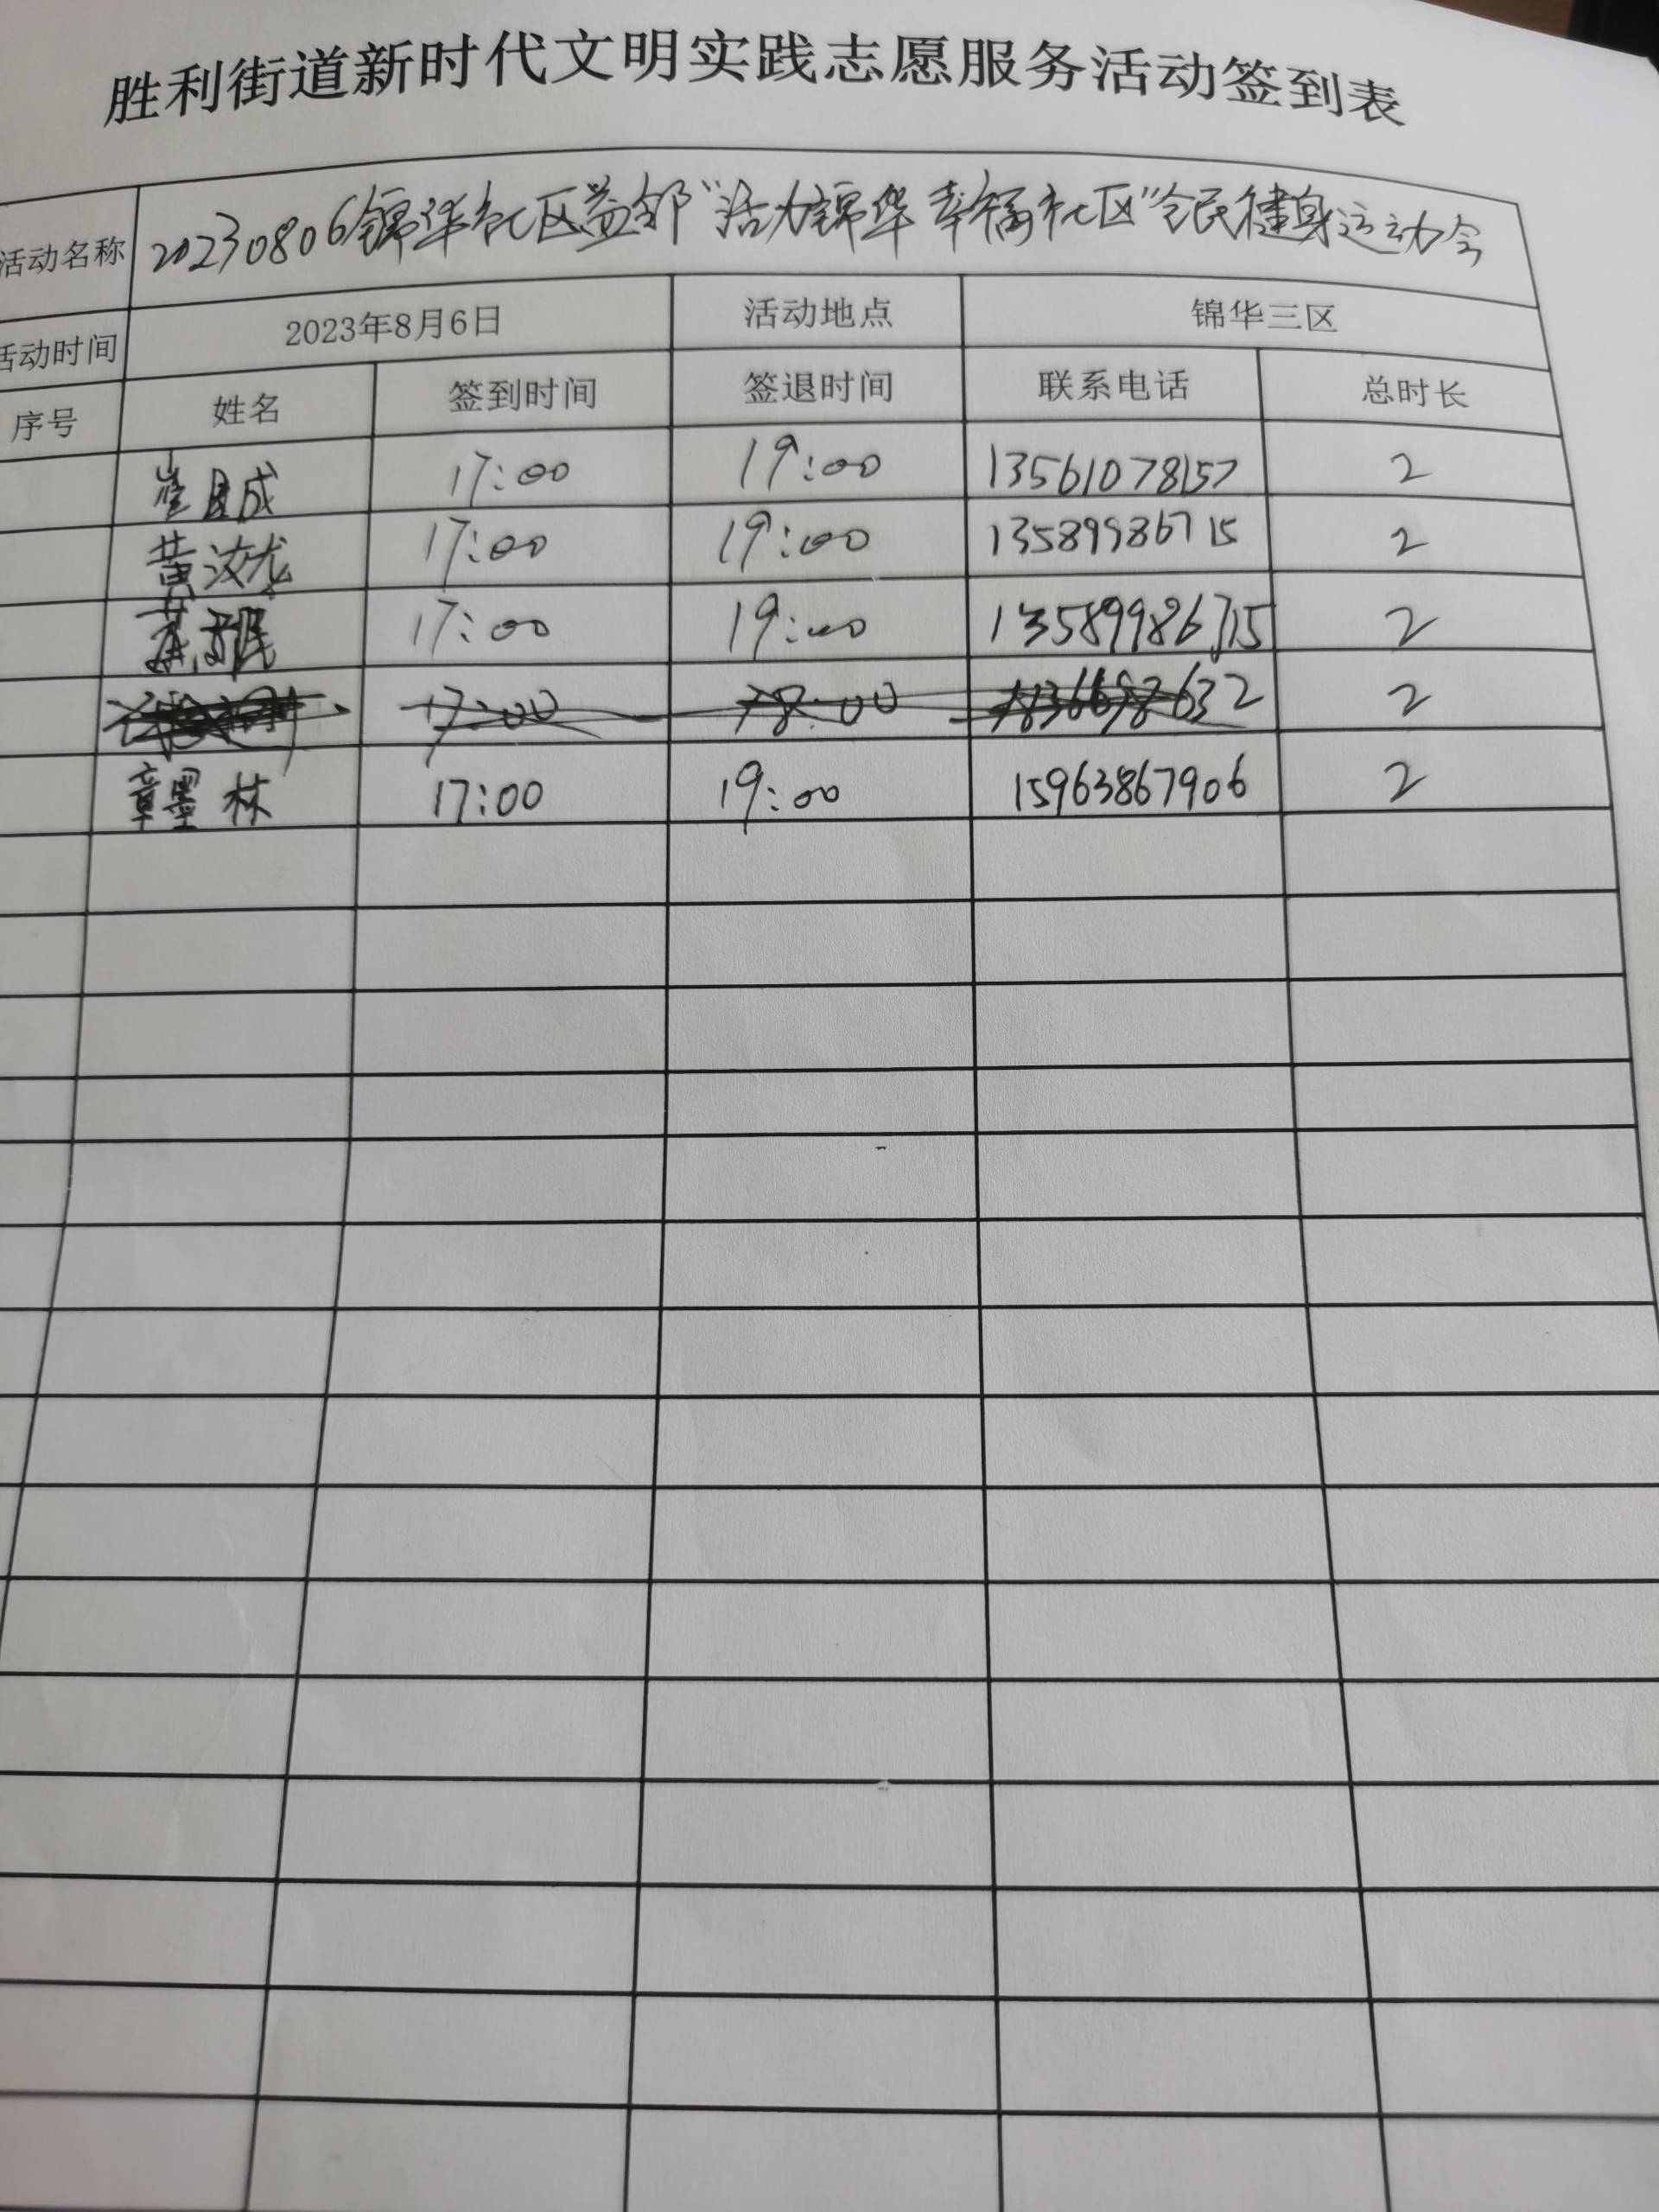 胜利街道新时代文明实践志愿服务活动签到表
活动名称 20230806锦华社区益邻“活力锦华 幸福社区”全民健身运动会
活动时间 2023年8月6日 活动地点 锦华三区
序号 姓名 签到时间 签退时间 联系电话 总时长
17:00 19:00 13561078157 2
黄汝龙 17:00 19:00 13589986715 2
17:00 19:00 13589986715 2
17:00 2
章墨林 17:00 19:00 15963867906 2